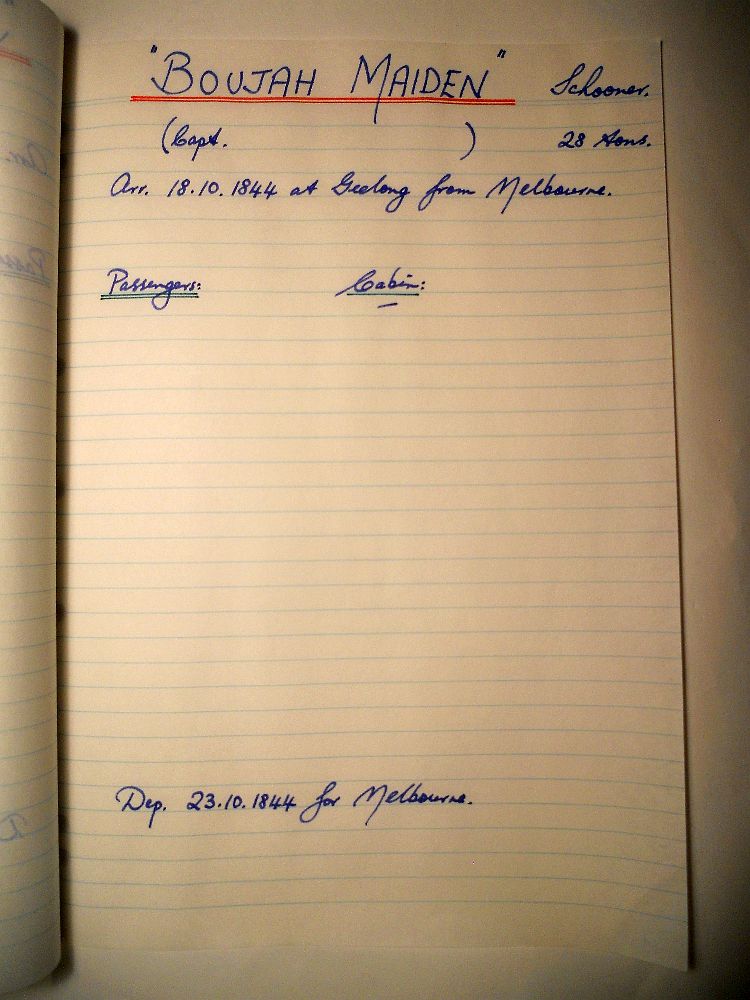 "BOUJAH MAIDEN" Schooner.
(Capt. ) 28 tons.
Arr. 18.10.1844 at Geelong from Melbourne.
Passengers: Cabin:
Dep. 23.10.1844 for Melbourne.